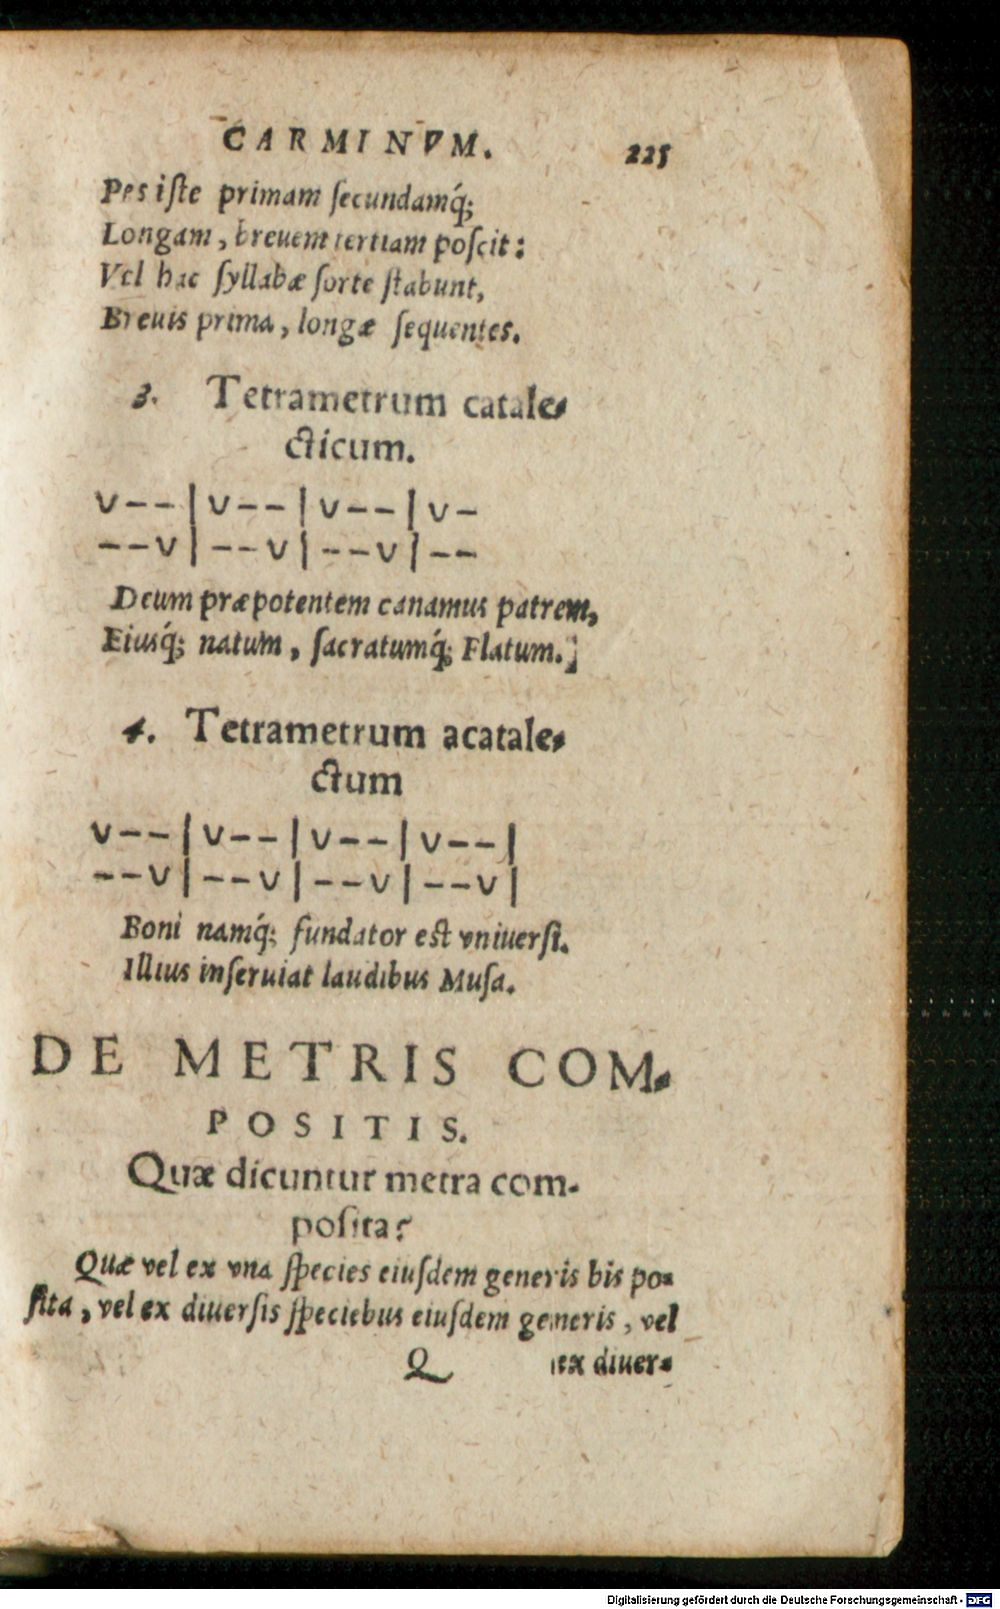 CARMINVM. 225
Pes iſte primam ſecundamq́;
Longam, breuem tertiam poſcit:
Vel hac ſyllabæ ſorte ſtabunt,
Breuis prima, longæ ſequentes.
3. Tetrametrum catale-
cticum.
∪--|∪--|∪--|∪-
--∪|--∪|--∪|--
Deum præpotentem canamus patrem,
Eiusq́; natum, ſacratumq́; Flatum.]
4. Tetrametrum acatale-
ctum
∪--|∪--|∪--|∪--|
--∪|--∪|--∪|--∪|
Boni namq́; fundator eſt vniuerſi.
Illius inſeruiat laudibus Muſa.
DE METRIS COM-
POSITIS.
Quæ dicuntur metra com-
poſita?
Quæ vel ex vna ſpecies eiuſdem generis bis po-
ſita, vel ex diuerſis ſpeciebus eiuſdem generis, vel
Q ex diuer-
Digitalisierung gefördert durch die Deutsche Forschungsgemeinschaft - DFG